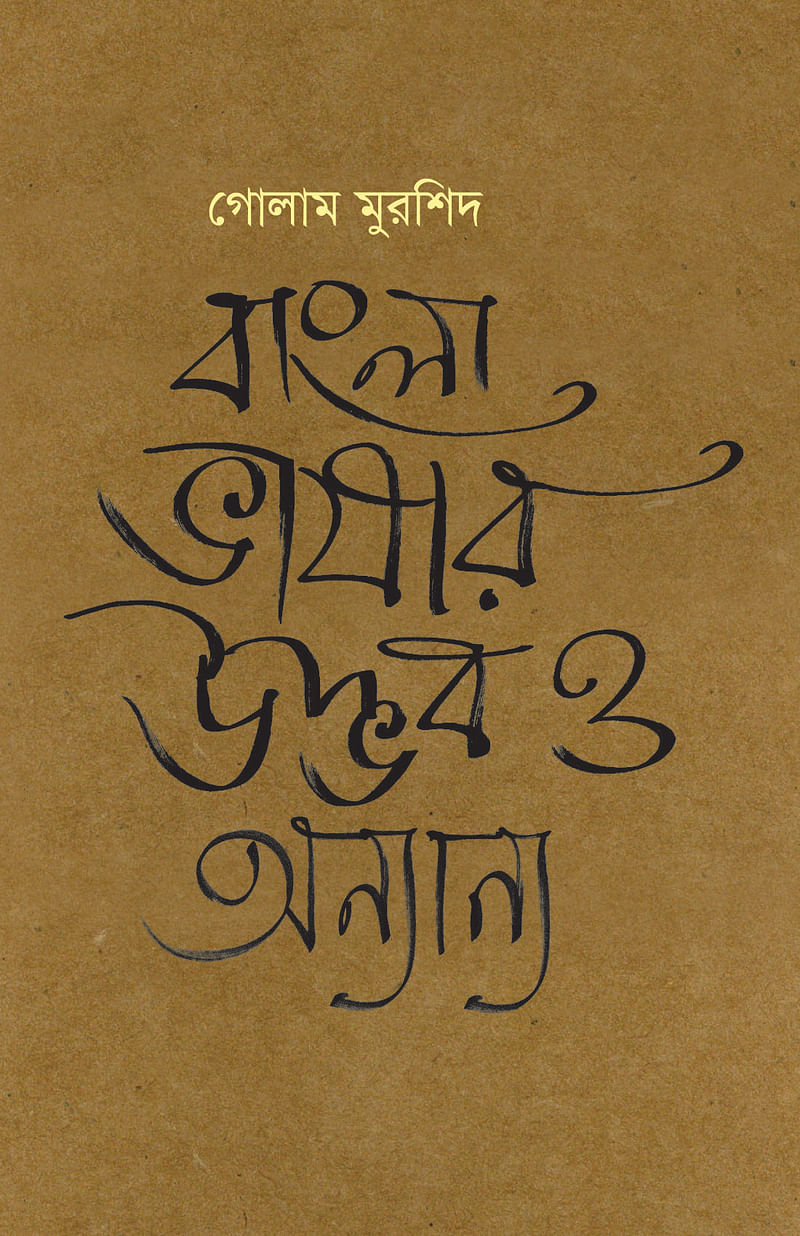 গোলাম মুরশিদ
বাংলা
ভাষার
উদ্ভব ও
অন্যান্য